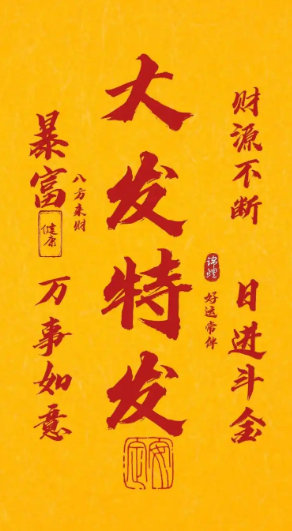 财源不断
日进斗金
锦鲤
好运常伴
大发特发
安定
八方来财
暴富
健康
万事如意